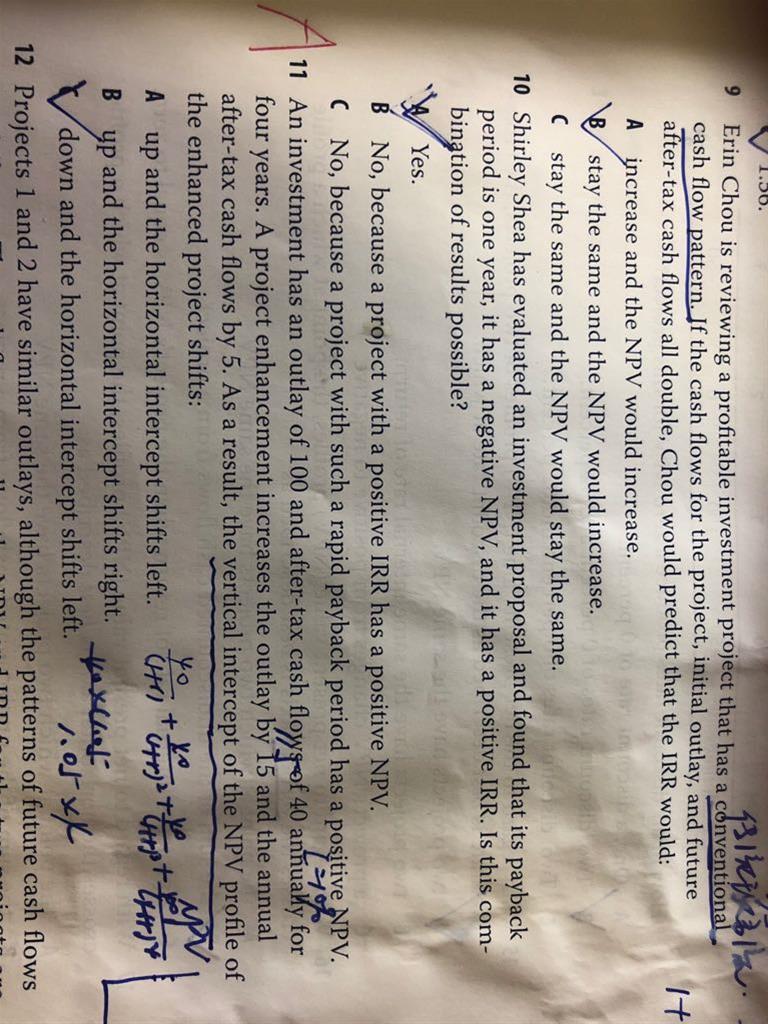 1.56.
9 Erin Chou is reviewing a profitable investment project that has a conventional
cash flow pattern. If the cash flows for the project, initial outlay, and future
after-tax cash flows all double, Chou would predict that the IRR would:
A increase and the NPV would increase.
B stay the same and the NPV would increase.
C stay the same and the NPV would stay the same.
10 Shirley Shea has evaluated an investment proposal and found that its payback
period is one year, it has a negative NPV, and it has a positive IRR. Is this com-
bination of results possible?
A Yes.
B No, because a project with a positive IRR has a positive NPV.
C No, because a project with such a rapid payback period has a positive NPV.
11 An investment has an outlay of 100 and after-tax cash flows of 40 annually for
four years. A project enhancement increases the outlay by 15 and the annual
after-tax cash flows by 5. As a result, the vertical intercept of the NPV profile of
the enhanced project shifts:
A up and the horizontal intercept shifts left.
B up and the horizontal intercept shifts right.
C down and the horizontal intercept shifts left.
12 Projects 1 and 2 have similar outlays, although the patterns of future cash flows
1+
115
NPV
1.05